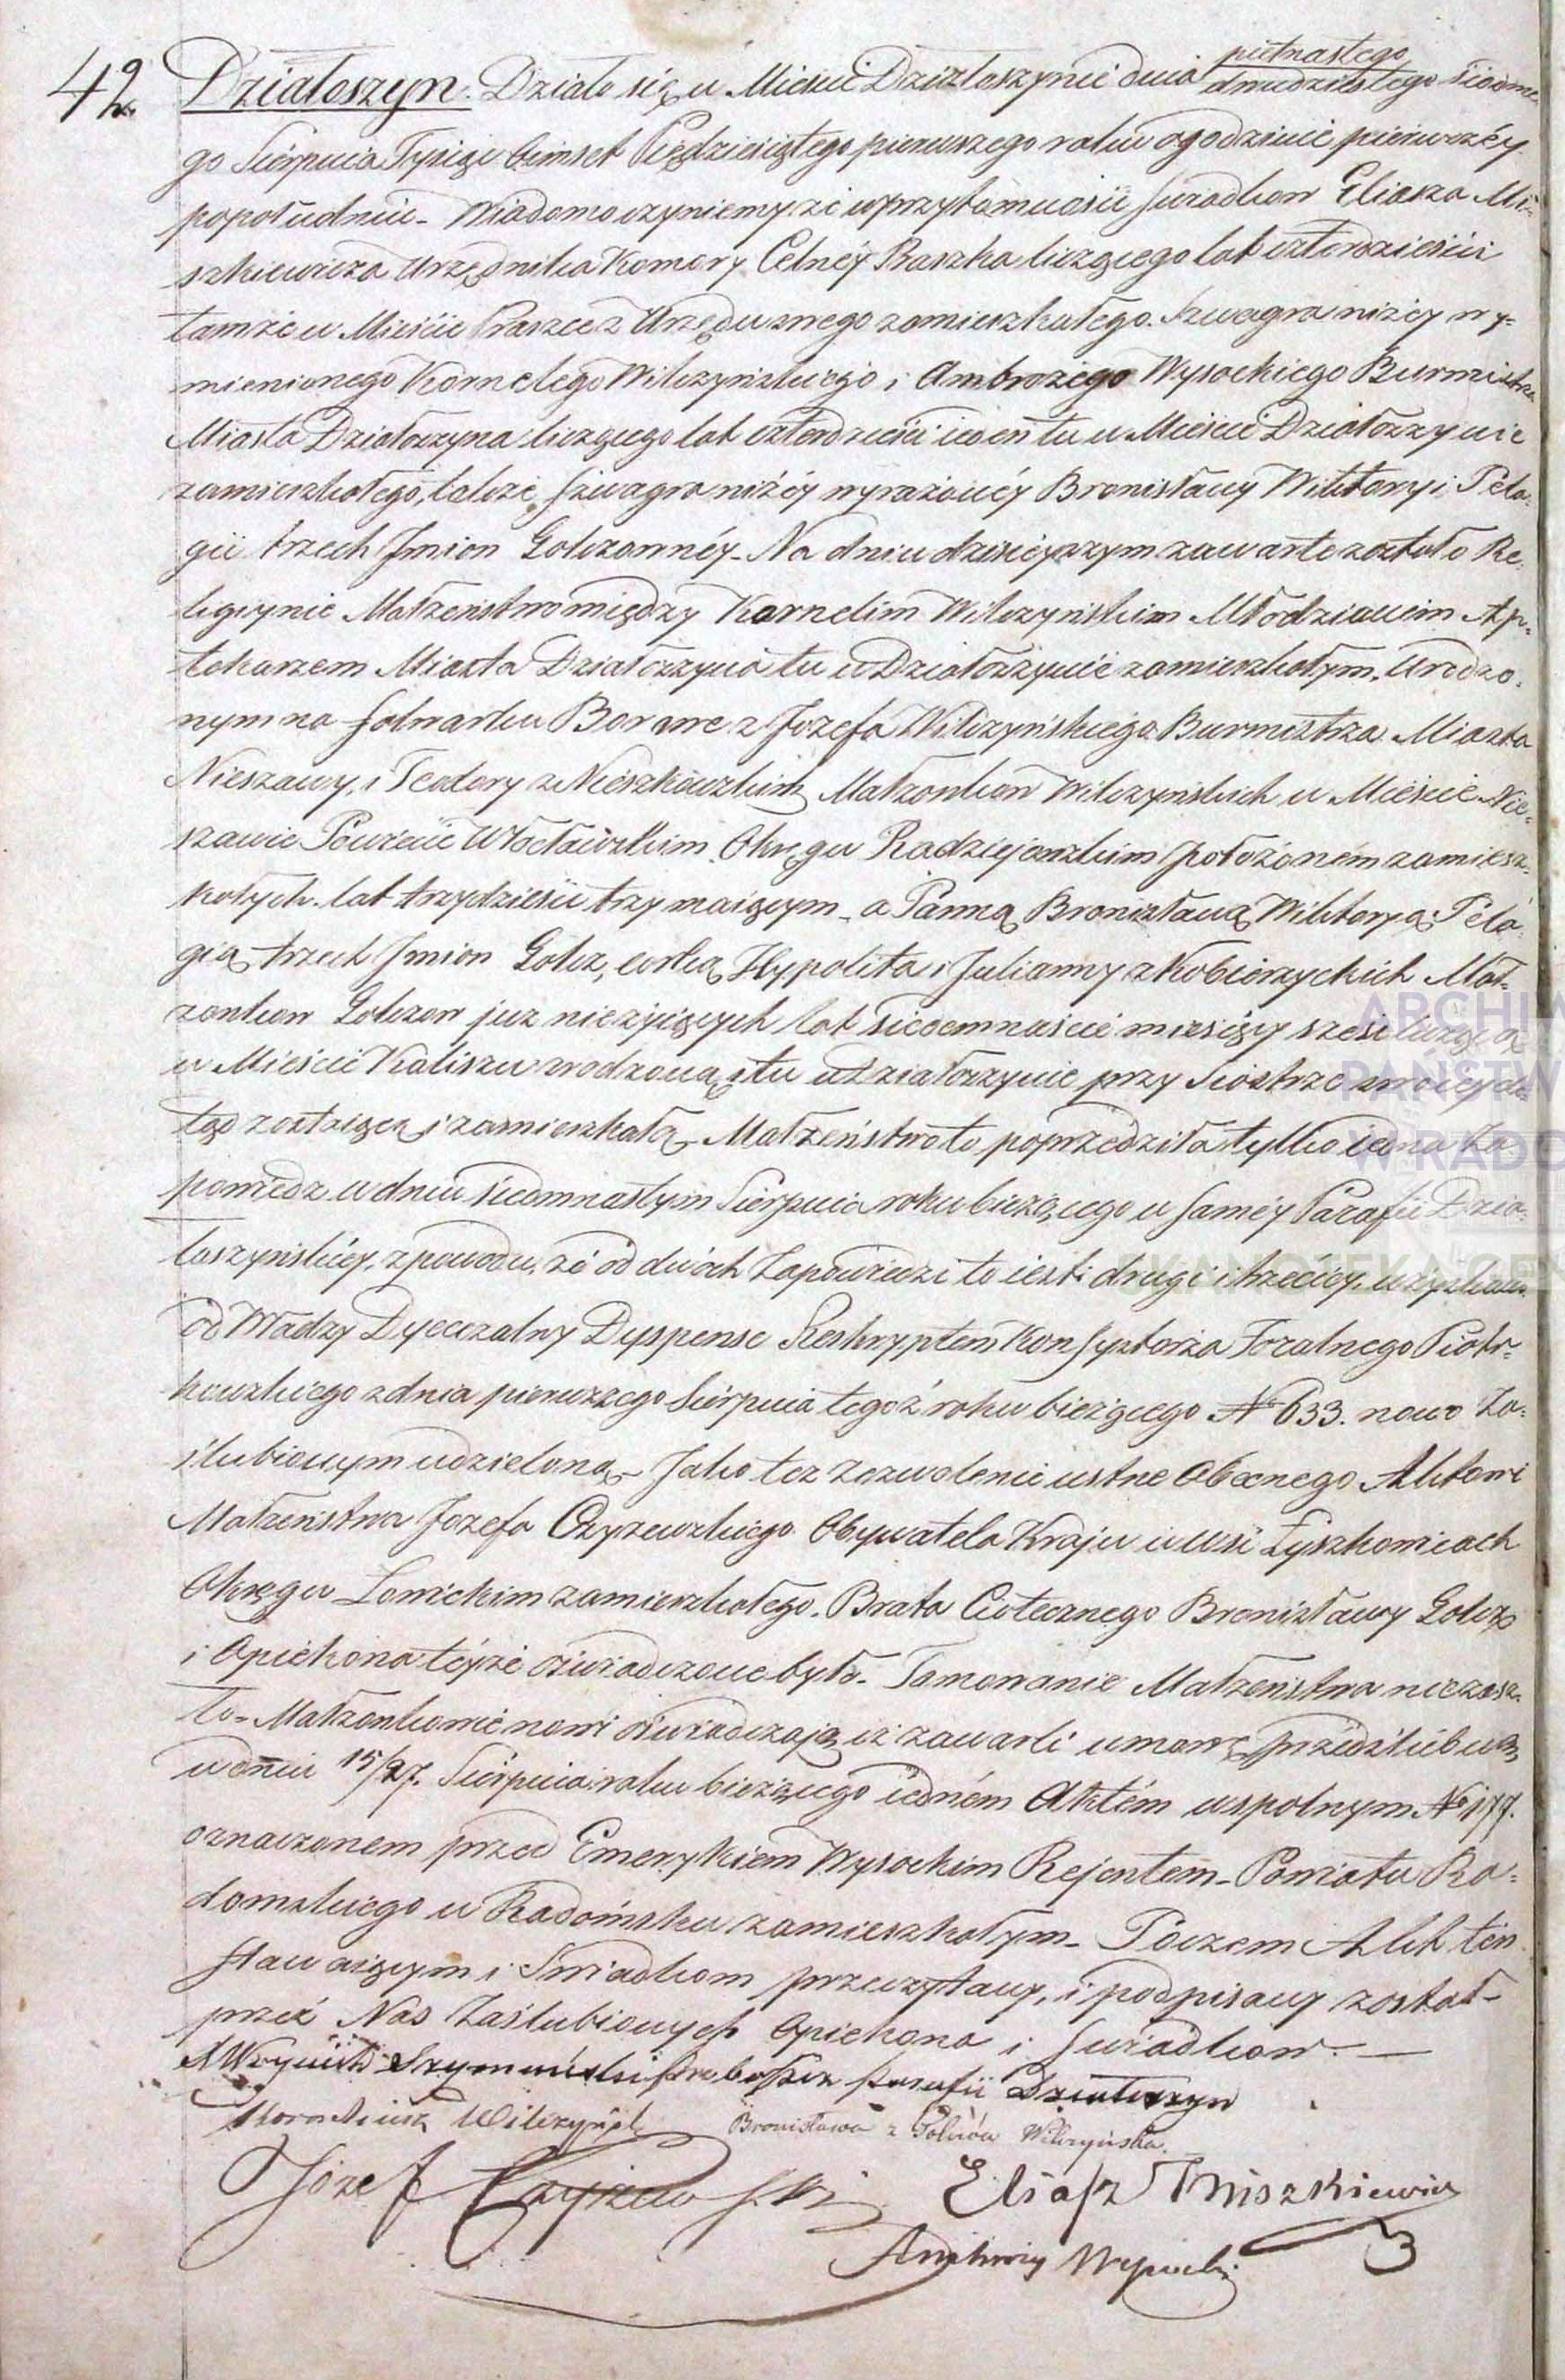 42. Działoszyn. Działo się w Mieście Działoszynie dnia piętnastego/dwudziestego siódme-
go Sierpnia Tysiąc ośmset Pięćdziesiątego pierwszego roku o godzinie pierwszéy
popołudniu – Wiadomo czyniemy że w przytomności Swiadkow Eliasza Mi-
szkiewicza Urzędnika Komory Celnéy Praszka liczącego lat czterdzieści
tamże w Mieście Praszce z Urzędu swego zamieszkałego. Szwagra niżéy wy-
mienionego Kornelego Wilczyńskiego i Ambrożego Wysockiego Burmistrza
Miasta Działoszyna liczącego lat czterdzieści ieden tu w Mieście Działoszynie
zamieszkałego, także Szwagra niżéy wyrażonéy Bronisławy Wiktoryi Pela-
gii trzech Imion Golczonnéy – Na dniu dzisiéyszym zawarte zostało Re-
ligiynie Małżeństwo między Kornelim Wilczyńskim Młodzianem Ap-
tekarzem Miasta Działoszyna tu w Działoszynie zamieszkałym, Urodzo-
nym na folwarku Borowe z Józefa Wilczyńskiego Burmistrza Miasta
Nieszawy, i Teodory z Mieszkowskich Małżonków Wilczyńskich w Mieście Nie-
szawie Powiecie Włocławskim Okręgu Radziejewskim położonem zamiesz-
kałych. lat trzydzieści trzy maiącym – a Panną Bronisławą Wiktoryą Pela-
gią trzech Imion Golcz, córką Hypolita i Julianny z Kobierzyckich Mał-
żonkow Golczow już nieżyiących lat siedemnaście miesięcy sześć liczącą
w Mieście Kaliszu urodzoną, i tu w Działoszynie przy Siostrze swoiey do-
tąd zostaiącą i zamieszkałą – Małżeństwo to poprzedziła tylko iedna Za-
powiedz w dniu siedmnastym Sierpnia roku bieżącego w saméy Parafii Dzia-
łoszyńskiéy, z powodu, że od dwóch Zapowiedzi to iest: drugi i trzeciey, uzyskali
od Władzy Dyecezalny Dyspense Reskryptem Konsystorza Foralnego Piotr-
kowskiego z dnia pierwszego Sierpnia tegoż roku bieżącego № 633. nowo Za-
ślubionym udzieloną – Jako też zezwolenie ustne Obecnego Aktowi
Małżeństwa Józefa Czyżewskiego Obywatela Kraju w Wsi Łyszkowicach
Okręgu Łowickim zamieszkałego. Brata Ciotecznego Bronisławy Golcz
i Opiekona téyże oświadczone było – Tamowanie Małżeństwa nie zasz-
ło – Małżonkowie nowi oświadczają iż zawarli umowę przedślubną
w dniu 15/27. Sierpnia roku bieżącego iedném Aktém wspolnym № 177.
oznaczonem przed Emerykiem Wysockim Rejentem – Powiatu Ra-
domskiego w Radomsku zamieszkałym – Poczem Akt ten
stawaiącym i Swiadkom przeczytany, i podpisany został –
przez Nas Zaślubionych Opiekona i Swiadkow. —
Szymański Proboszcz Parafii Działoszyn
Wilczyński Bronisława z Golców Wilczyńska.
Józef Czyżewski Eliasz Miszkiewicz
Ambroży Wysocki